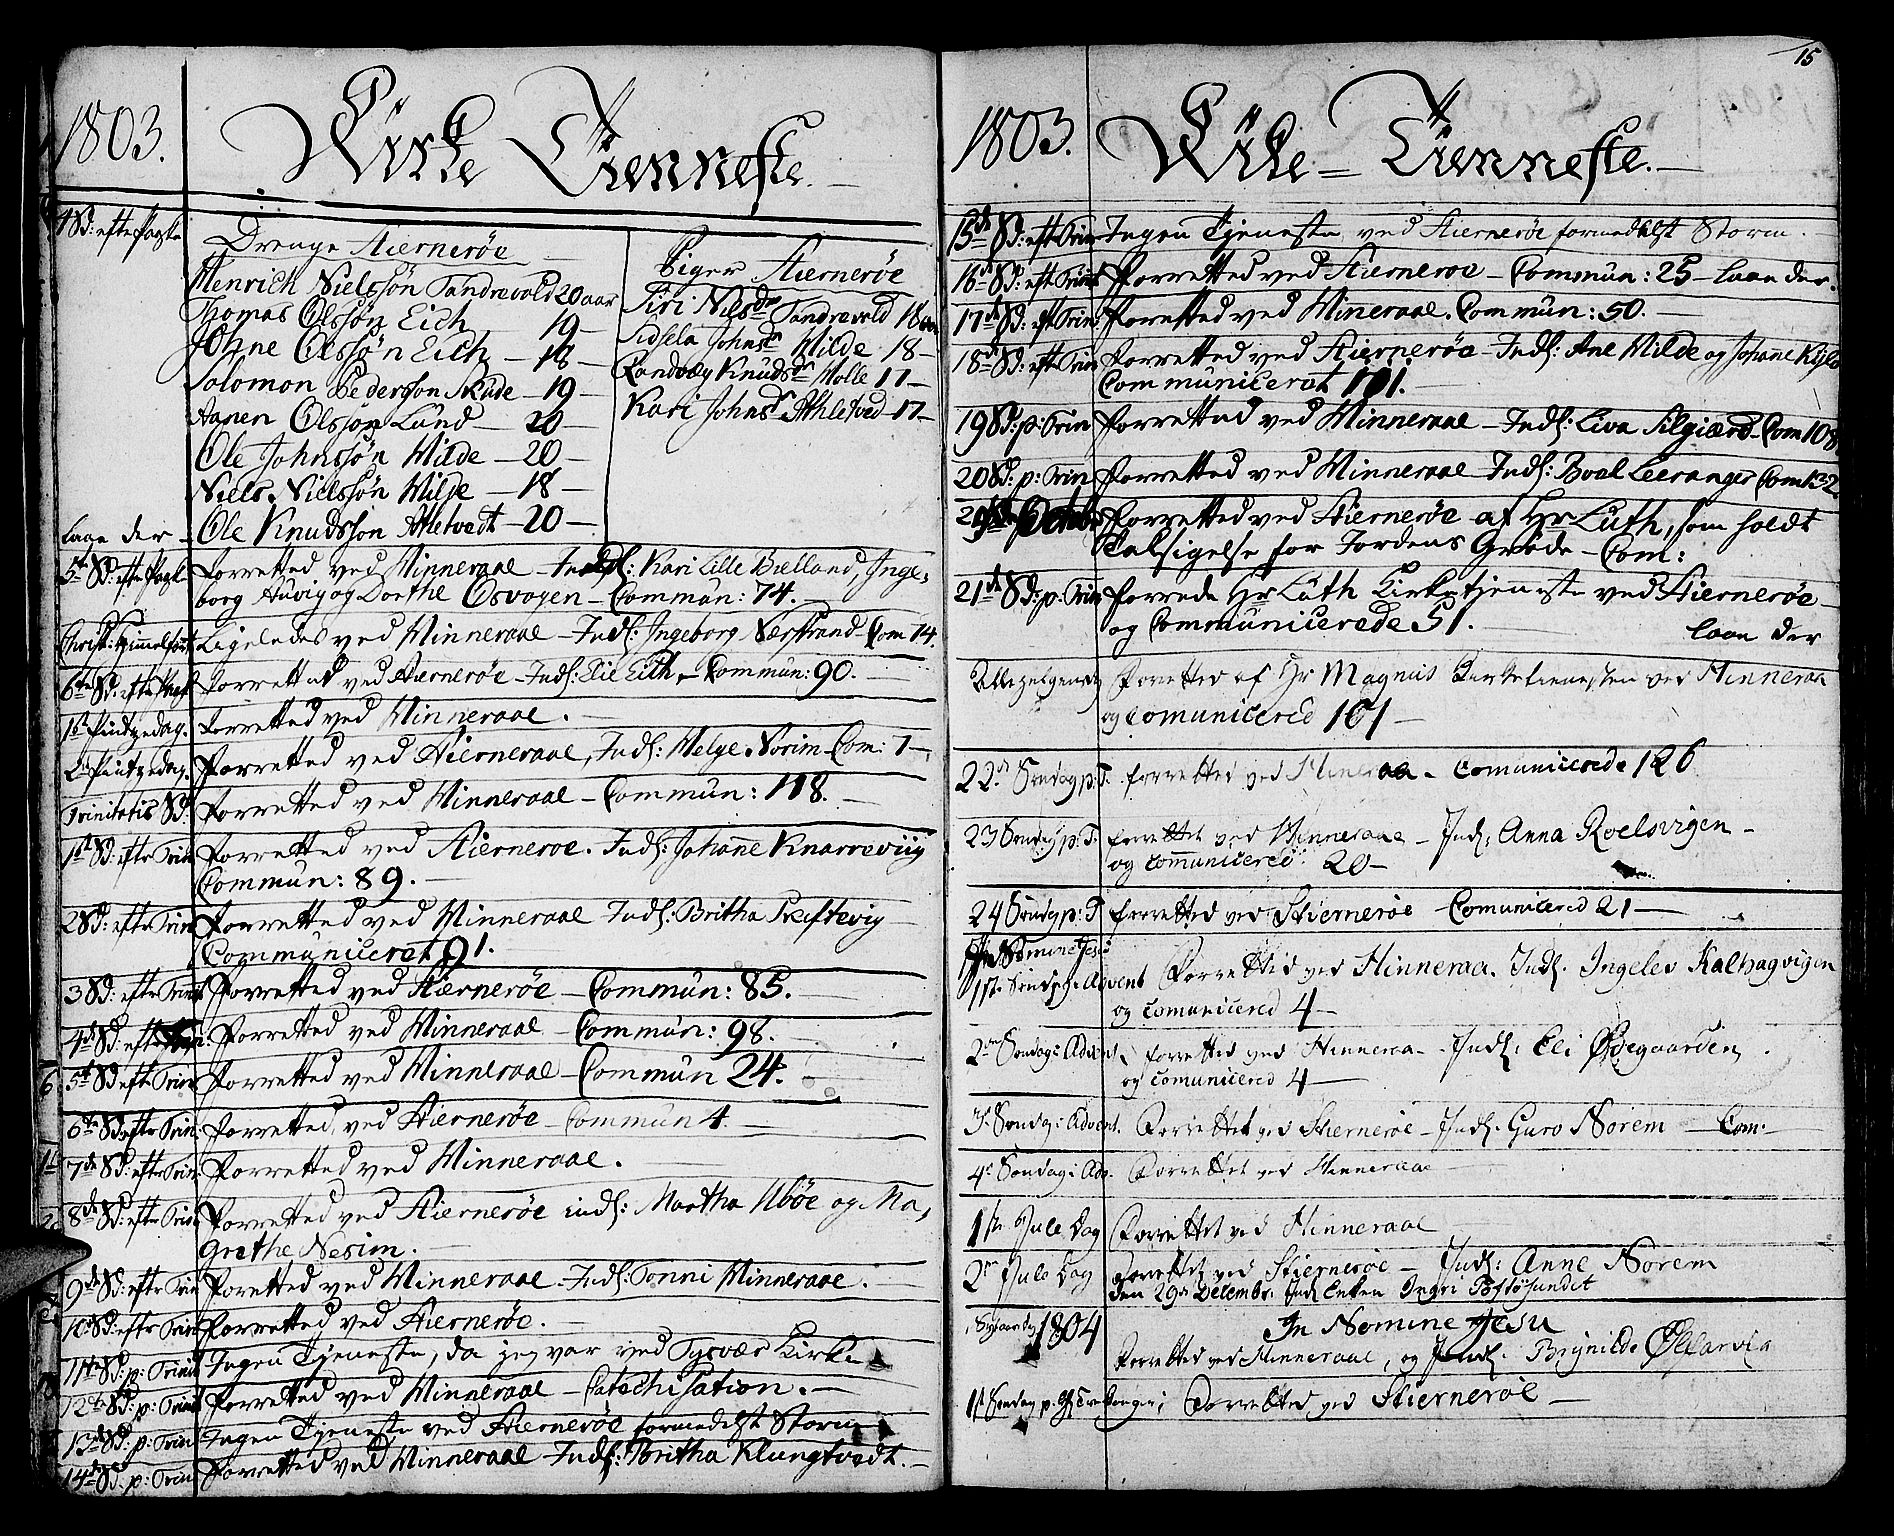 1803.
Kirke Tienneste.
4 Sd: efte Paaske
Drenge Hiernerøe
Henrich Nielssøn Tandrevold 20 aar
Thomas Olssøn Eich 19
Johne Olssøn Eich 18
Solomon Pederssøn Skade 19
Aanen Olssøn Lund 20
Ole Johnssøn Milde 20
Niels Nielssøn Milde 18
Ole Knudssøn Athletvedt 20
Piger Hiernerøe
Siri Nilsdr Tandrevold 18 aar
Sidsela Johnsdr Milde 18
Randveg Knudsdr Molle 17
Kari Johnsdr Athletved 17
Laae der
5te Sd: efte Paask Forretted ved Hinneraae Inds: Kari Lille Buelland, Inge-
borg Auvig og Dorthe Osvogen Commun: 74.
Christi Himmelfart Ligeledes ved Hinneraae Inds: Ingeborg Nærstrand Com 14.
6te Sd: efte Paask Forrettet ved Hiernerøe Inds: Elie Eich Commun: 90.
1ste Pintzedag. Forretted ved Hinneraae.
2den Pintzedag. Forretted ved Hierneraae, Inds: Helge Norim Com: 7
Trinitatis Sd: Forretted ved Hinneraae Commun: 118.
1ste Sd: efte Trin Forretted ved Hierneroe. Inds: Johanne Knarreviig
Commun: 89.
2 Sd: efte Trin Forretted ved Hinneraae Inds: Britha Træftevig
Communicerat 91.
3 Sd: efte Trinit Forretted ved Hiernerøe Commun: 85.
4de Sd: efte Forretted ved Hinneraae Commun: 98.
5te Sd: efte Trin Forretted ved Hinneraae Commun 24.
6te Sd: efte Trin: Forretted ved Hiernerøe Commun 4.
7de Sd: efte Trin: Forretted ved Hinneraae.
8de Sd: efte Trin Forretted ved Hiernerøe inds: Martha Ubøe og Ma-
Grethe Nesim.
9de Sd: efte Trin Forretted ved Hinneraae Inds: Tonni Hinneraae.
10de Sd: efte Trin Forretted ved Hiernerøe.
11te Sd: p: Trinit Ingen Tjeneste, da jeg var ved Tysvær Kirke
12te Sd: p: Trinit Forretted ved Hinneraae Catechisation.
13de Sd: p: Trin Ingen Tjeneste ved Hiernerøe formedelst Storm
14de Sd: p: Trin Forretted ved Hinneraae Inds: Britha Klungtvedt.
15
1803.
Kirke Tienneste.
15de Sd: eft Trin Ingen Tjeneste ved Hiernerøe formedelst Storm.
16de Sd: eft Trinit Forretted ved Hierneroe Commun: 25 laae der.
17de Sd: eft Trinit Forretted ved Hinneraae. Commun: 50.
18de Sd: eft Trin Forretted ved Hiernerøe Inds: Ane Milde og Johane
Communicerat 101.
19 Sd: p: Trin Forretted ved Hinneraae Inds: Liva Silgiærd Com 108
20 Sd: p: Trin Forretted ved Hinneraae Inds: Boel Leeranger Com 132
Octob Forretted ved Hiernerøe af Hr Luth, som holdt
Taksigelse for Jordens Grøde Com:
21de Sd: p: Trin Forrede Hr Luth Kirketjeneste ved Hiernerøe
og Communicerede 51. laae der
Allehelgensdg Forretted af Hr Magnus Kirketienesten ved Hinneraa
og Comunicered 101
22de Søndag p: T. forretted ved Hineraa. Comunicerede 126
23 Søndag p: T. forrettet ved Hinneraae Inds: Anna Roelsvigen
og Communicered: 20
24 Søndg p: T forretted ved Stiernerøe Comunicered 21
In Nomine Jesu
1ste Søndg i Advent Forretted ved Hinneraa. Inds. Ingelev Kalhagvigen
og Comunicered 4
2den Søndag i Advent forretted ved Hinneraa Inds: Eli Ødegaarden
og Comunicered 4
3de Søndag i Advent. Forrettet ved Stiernerøe Inds. Guro Norem Com:
4de Søndag i Adv. Forrettet ved Hinneraae
1ste Jule Dag Forrettet ved Hinneraae
2den Jule Dag Forrettet ved Stiernerøe Inds: Anne Norem
den 29de Decembr. Inds Enken Ingri Toftøsundet
Nyaarsdg 1804 In Nomine Jesu
Forretted ved Hinneraae, og Inds. Brynilde Østarvig
1ste Søndag p. H. Tre Konger; Forretted ved Stiernerøe